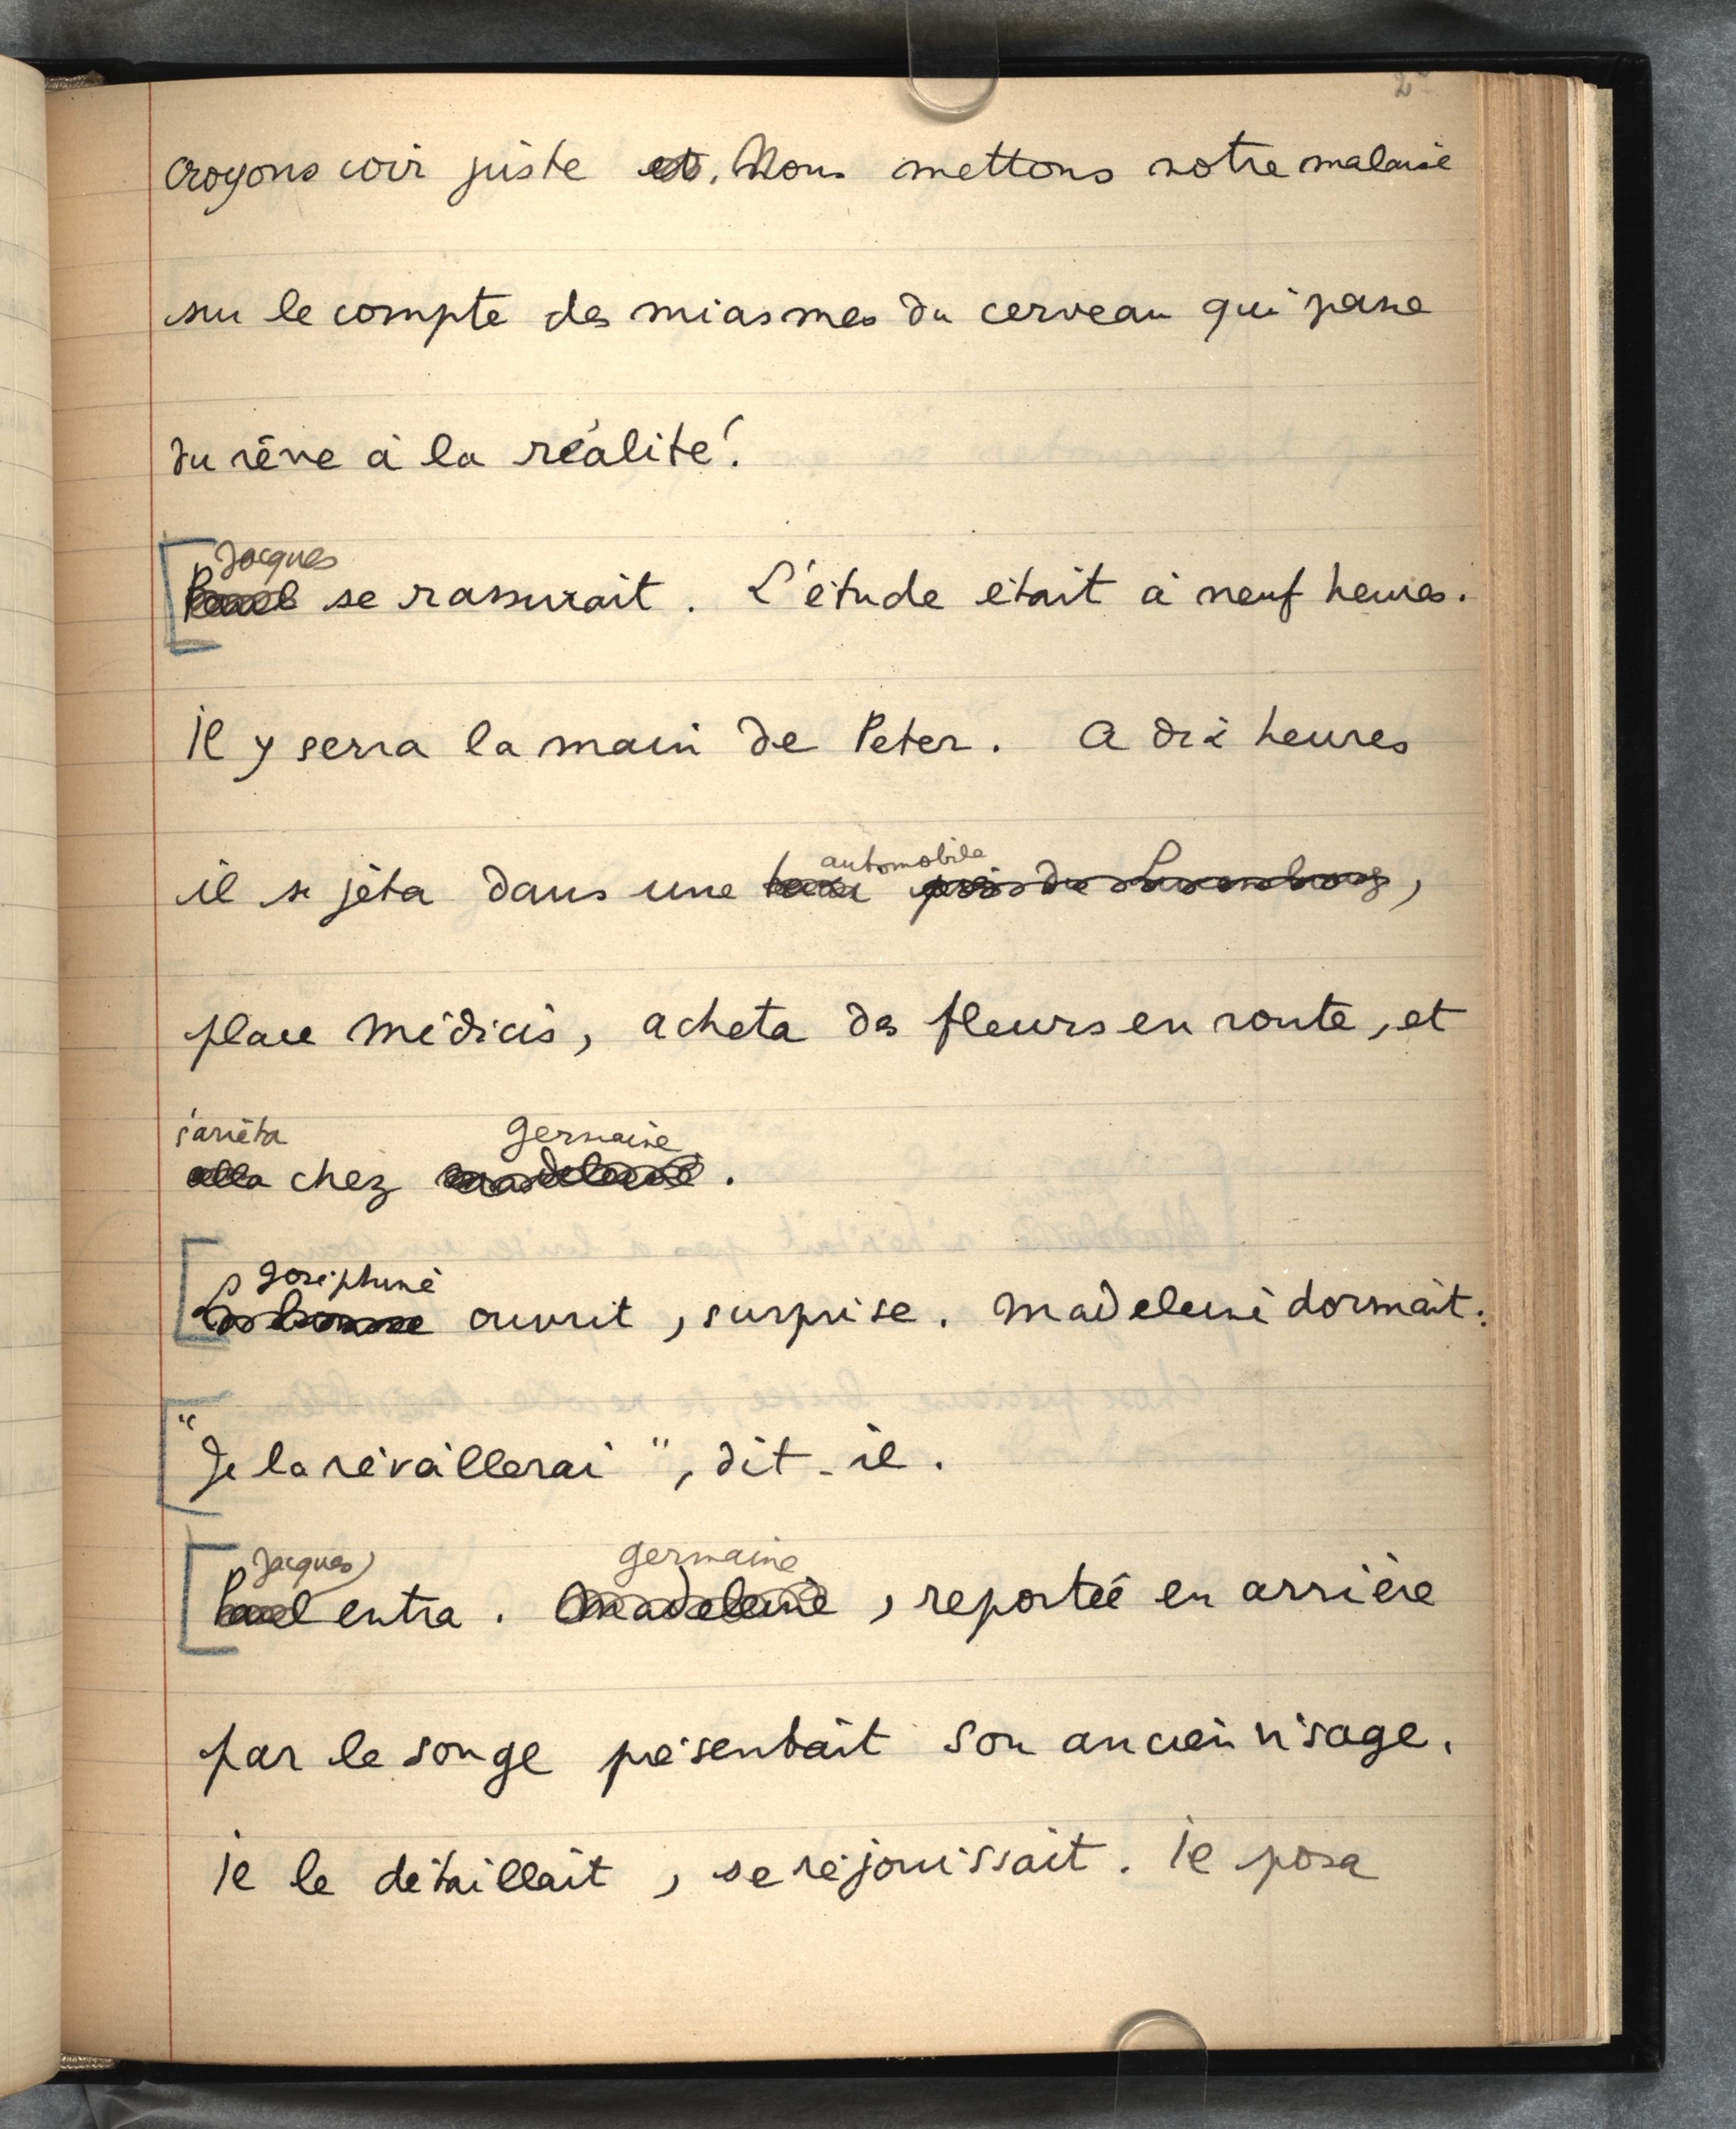 2
croyons voir juste et. Nous mettons notre malaise
sur le compte des miasmes du cerveau qui passe
du rêve à la réalité.
Jacques
Paul se rassurait. L'étude était à neuf heures.
il y serra la main de Peter. A dix heures
automobile
il se jeta dans une taxi près du Luxembourg,
place Médicis, acheta des fleurs en route, et
s'arrêta germaine
alla chez madeleine.
Joséphine
La bonne ouvrit, surprise. Madeleine dormait.
"Je la réveillerai", dit-il.
Jacques germaine
Paul entra. Madeleine, reportée en arrière
par le songe présentait son ancien visage.
il le détaillait, se réjouissait. il posa